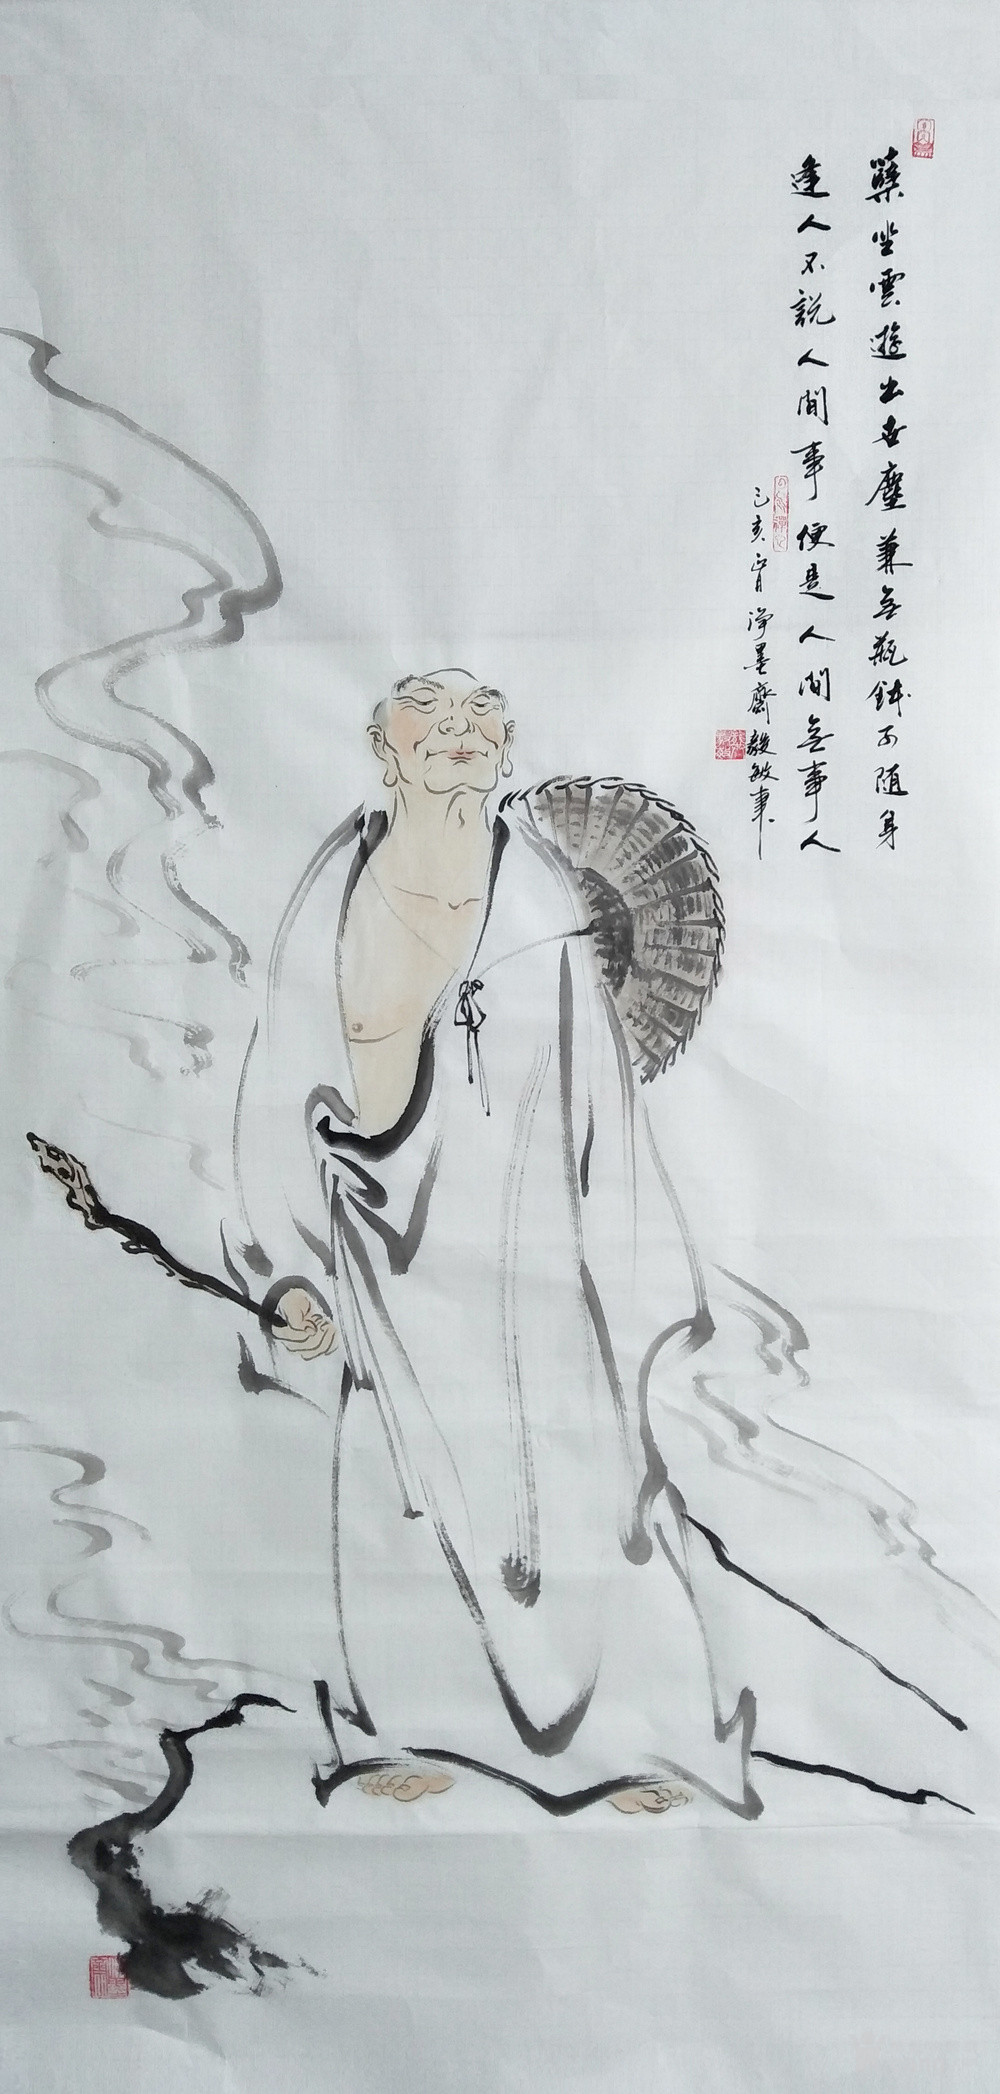 蘖坐雲遊出世塵兼無瓶鉢可随身
逢人不說人間事便是人間無事人
己亥正月淨墨齋毅敏